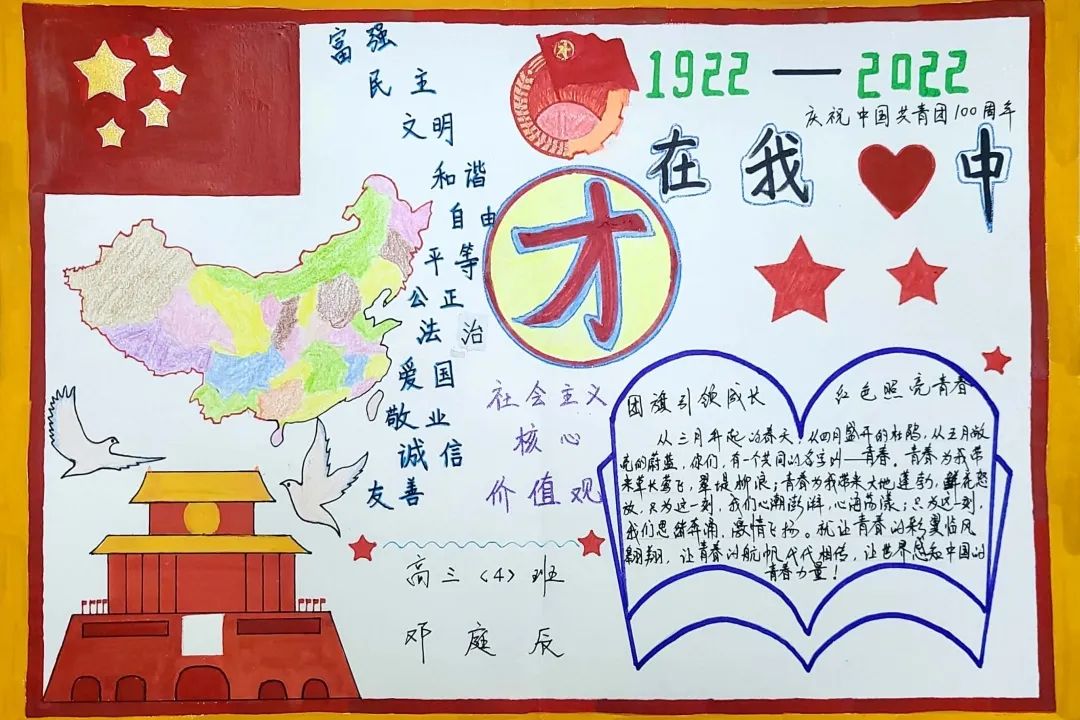 富强
民主
文明
和谐
自由
平等
公正
法治
爱国
敬业
诚信
友善
1922—2022
庆祝中国共青团100周年
在我中
才
社会主义
核心
价值观
团旗引领成长 红色照亮青春
从三月升起的春天，从四月盛开的杜鹃，从五月放
亮的蔚蓝，你们，有一个共同的名字叫—青春。青春为我带
来草长莺飞，翠堤柳浪；青春为我带来大地蓬勃，鲜花怒
放，只为这一刻，我们心潮澎湃，心海荡漾；只为这一刻，
我们思绪奔涌，激情飞扬。就让青春的彩翼临风
翩翩，让青春的航帆代代相传，让世界感知中国的
青春力量！
高三（4）班
邓庭辰